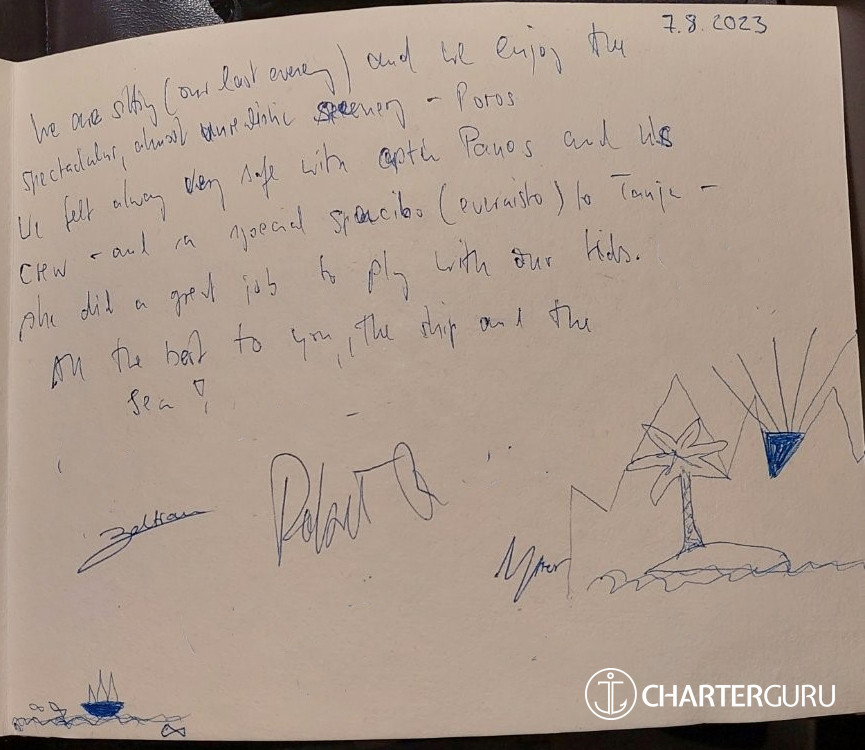 7.8.2023
We are sitting (our last evening) and we enjoy the
spectacular, almost unrealistic scenery - Poros
We felt alway very safe with captn Panos and his
crew - and a special spacibo (evraisto) to Tanja -
she did a great job to play with our kids.
All the best to you, the ship and the
sea!
Robert
CHARTERGURU